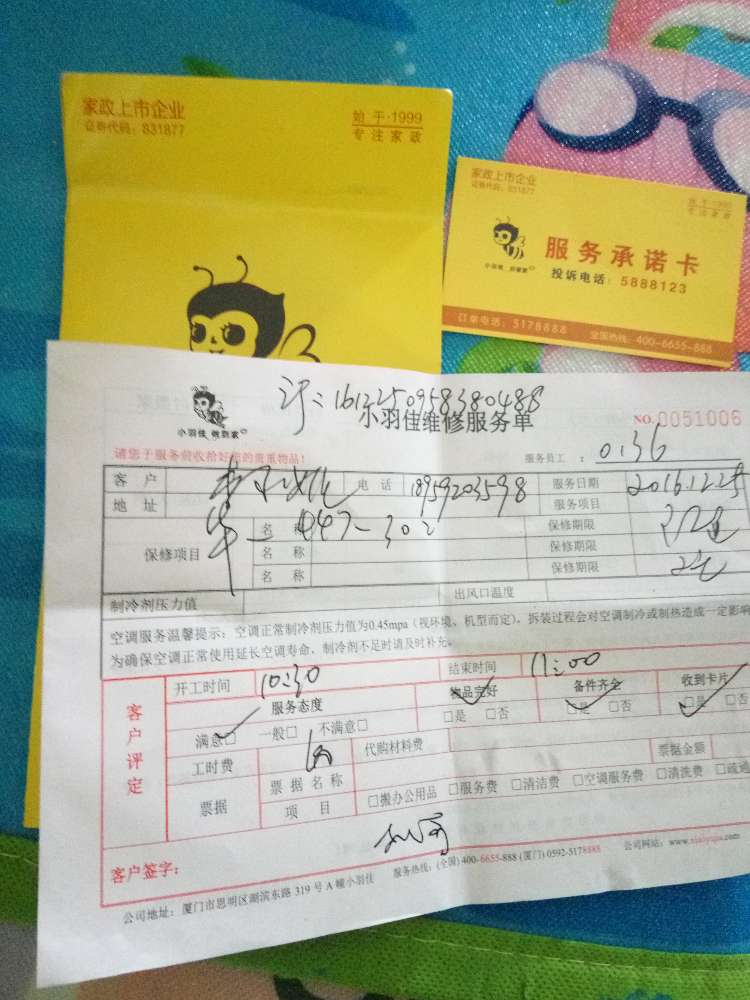 家政上市企业
证券代码：831877
始于·1999
专注家政
家政上市企业
证券代码：831877
始于·1999
专注家政
服务承诺卡
小羽佳 到我家
投诉电话：5888123
订单电话：5178888 全国热线：400-6655-888
小羽佳 做到家
小羽佳维修服务单
NO.0051006
请您于服务前收拾好您的贵重物品！
服务员工：0136
客户 电话 18959203598 服务日期 2016.12.25
地址 服务项目
保修项目
名称 保修期限
名称 保修期限
名称 保修期限
制冷剂压力值 出风口温度
空调服务温馨提示：空调正常制冷剂压力值为0.45mpa（视环境、机型而定），拆装过程会对空调制冷或制热造成一定影响
为确保空调正常使用延长空调寿命，制冷剂不足时请及时补充。
客户评定
开工时间 10:30 结束时间 11:00
服务态度 物品完好 备件齐全 收到卡片
满意□ 一般□ 不满意□ □是 □否 □是 □否 □是 □否
工时费 代购材料费
票据 票据名称 票据金额
项目 □搬办公用品 □服务费 □清洁费 □空调服务费 □清洗费 □疏通
客户签字：
公司地址：厦门市思明区湖滨东路 319 号 A 幢小羽佳 服务热线：(全国) 400-6655-888 (厦门) 0592-5178888 公司网站：www.xiaoyujia.com